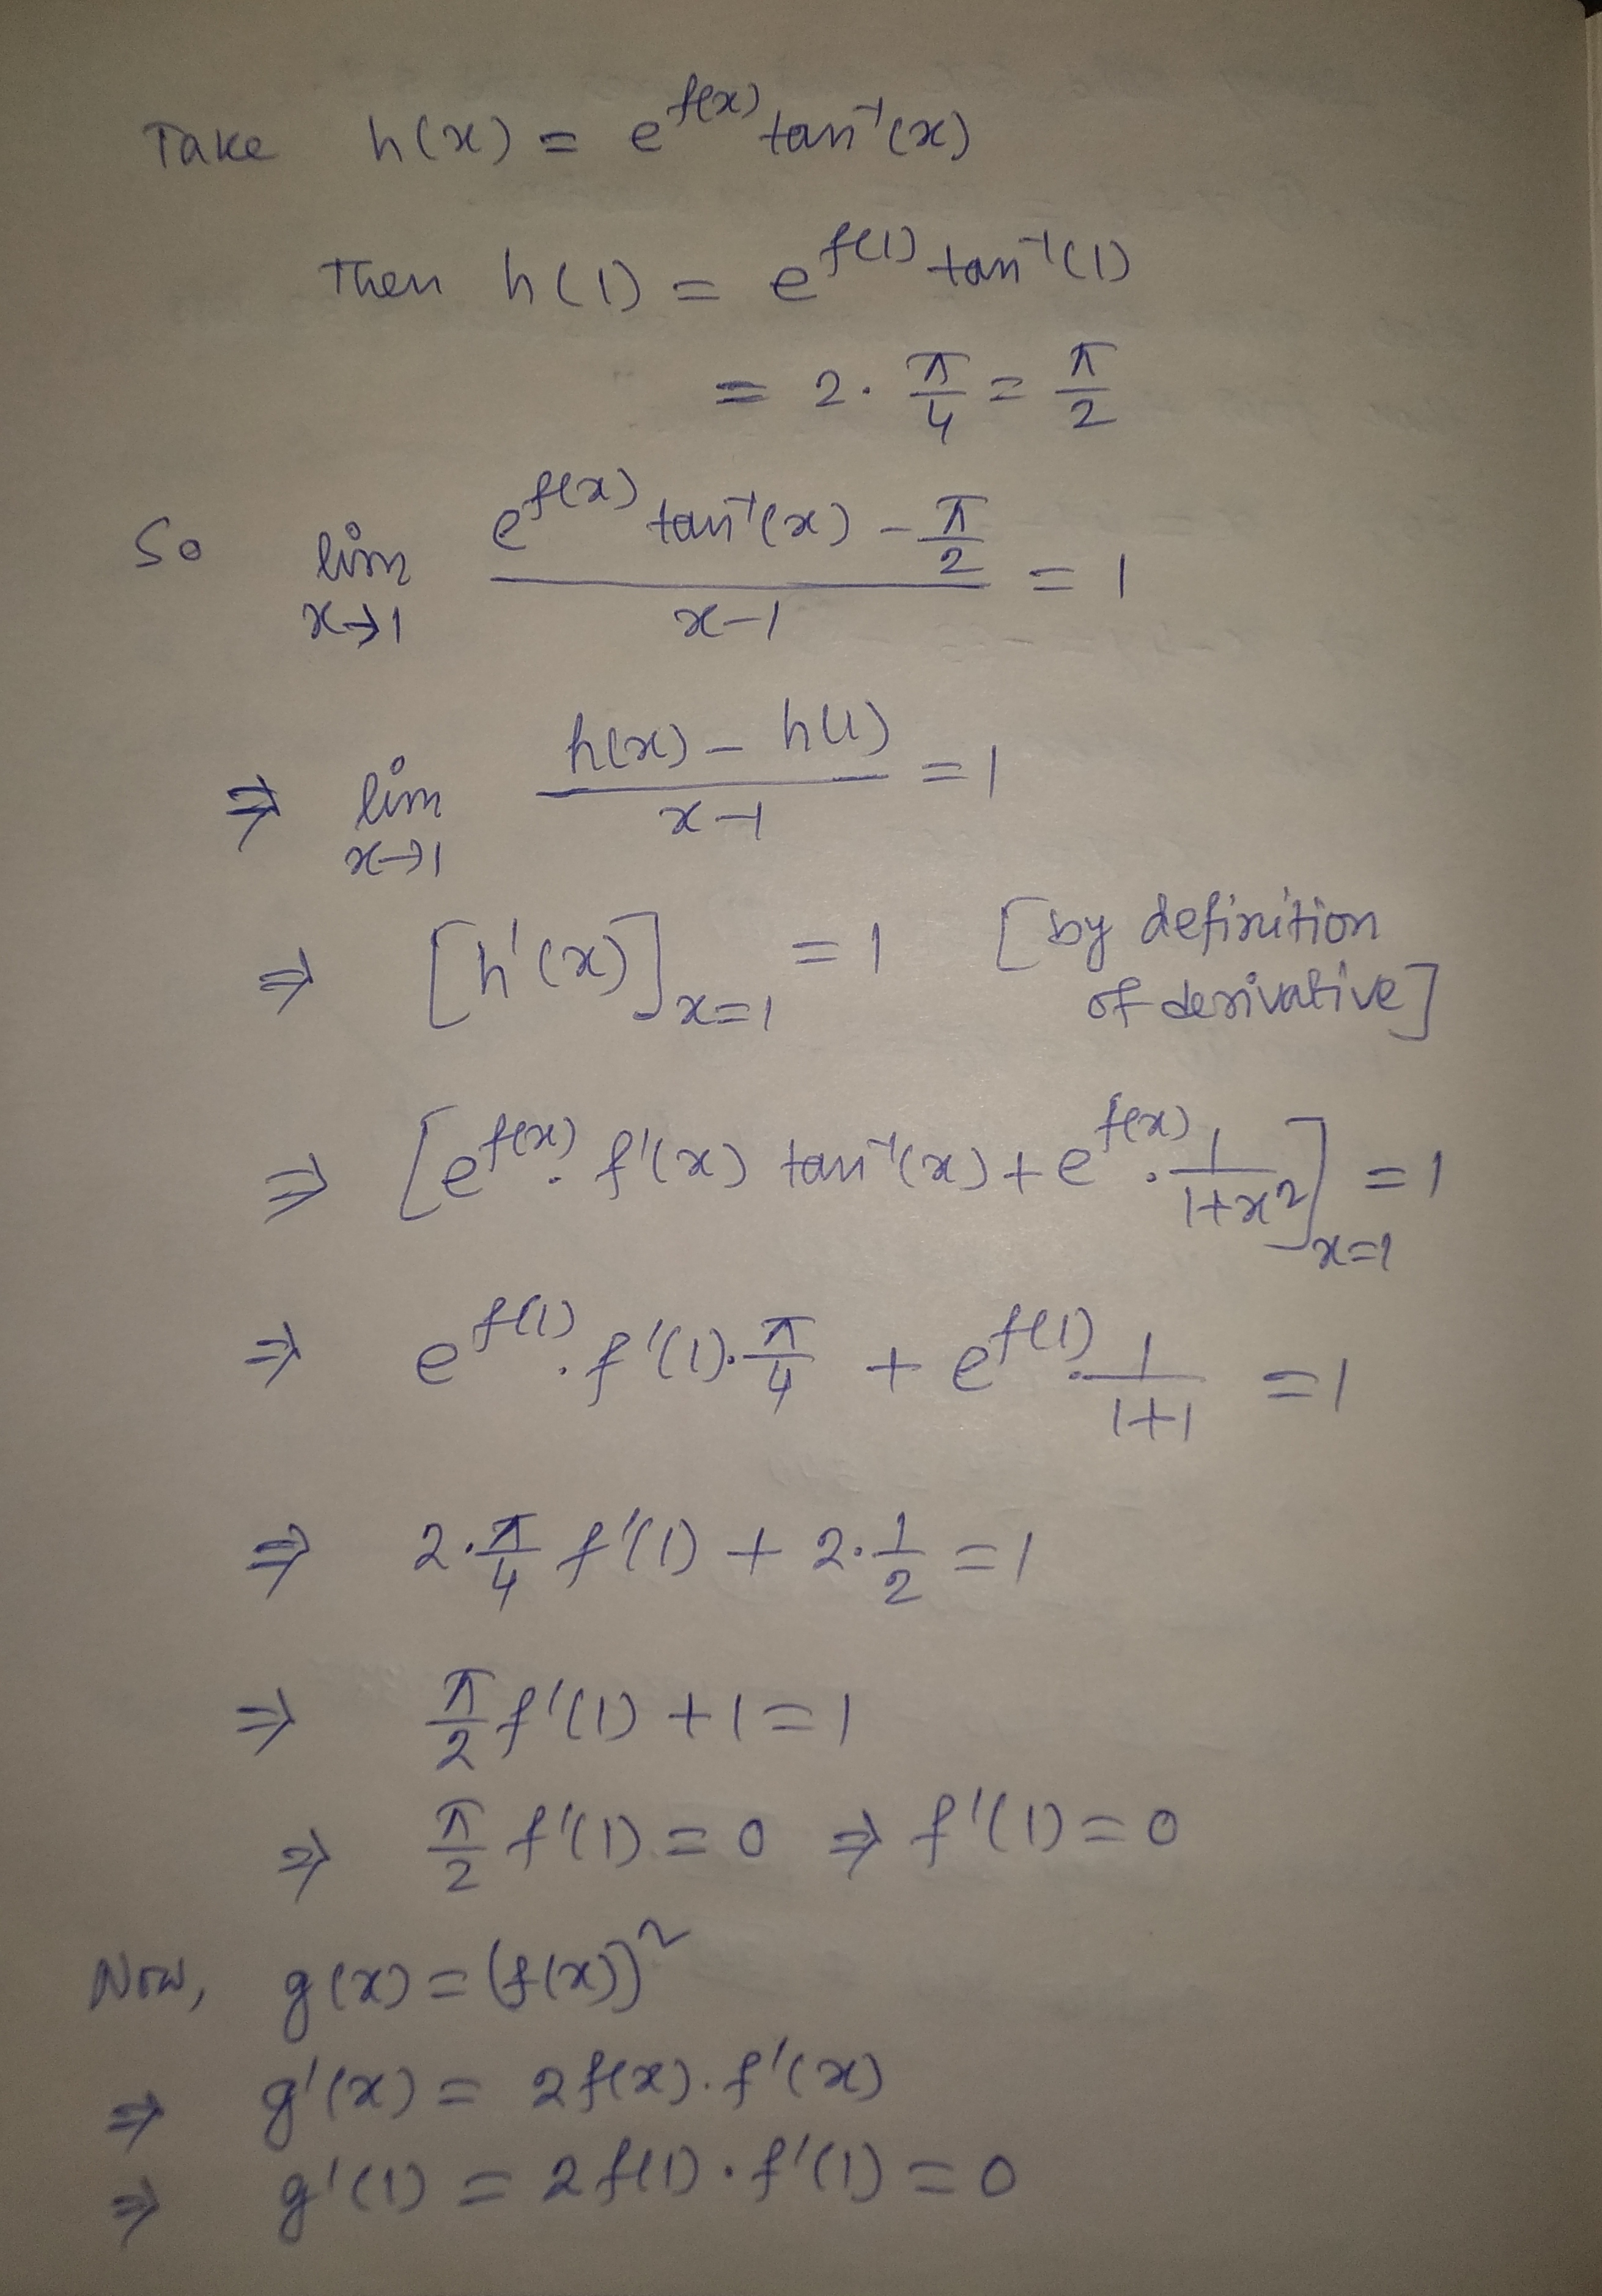 Take h(x) = e^{f(x)} tan⁻¹(x)
Then h(1) = e^{f(1)} tan⁻¹(1)
= 2 · π/4 = π/2
So lim_{x→1} (e^{f(x)} tan⁻¹(x) − π/2)/(x−1) = 1
⇒ lim_{x→1} (h(x) − h(1))/(x−1) = 1
⇒ [h'(x)]_{x=1} = 1 [by definition of derivative]
⇒ [e^{f(x)} · f'(x) tan⁻¹(x) + e^{f(x)} · 1/(1+x²)]_{x=1} = 1
⇒ e^{f(1)} · f'(1) · π/4 + e^{f(1)} · 1/(1+1) = 1
⇒ 2 · π/4 f'(1) + 2 · 1/2 = 1
⇒ π/2 f'(1) + 1 = 1
⇒ π/2 f'(1) = 0 ⇒ f'(1) = 0
Now, g(x) = (f(x))²
⇒ g'(x) = 2f(x) · f'(x)
⇒ g'(1) = 2f(1) · f'(1) = 0